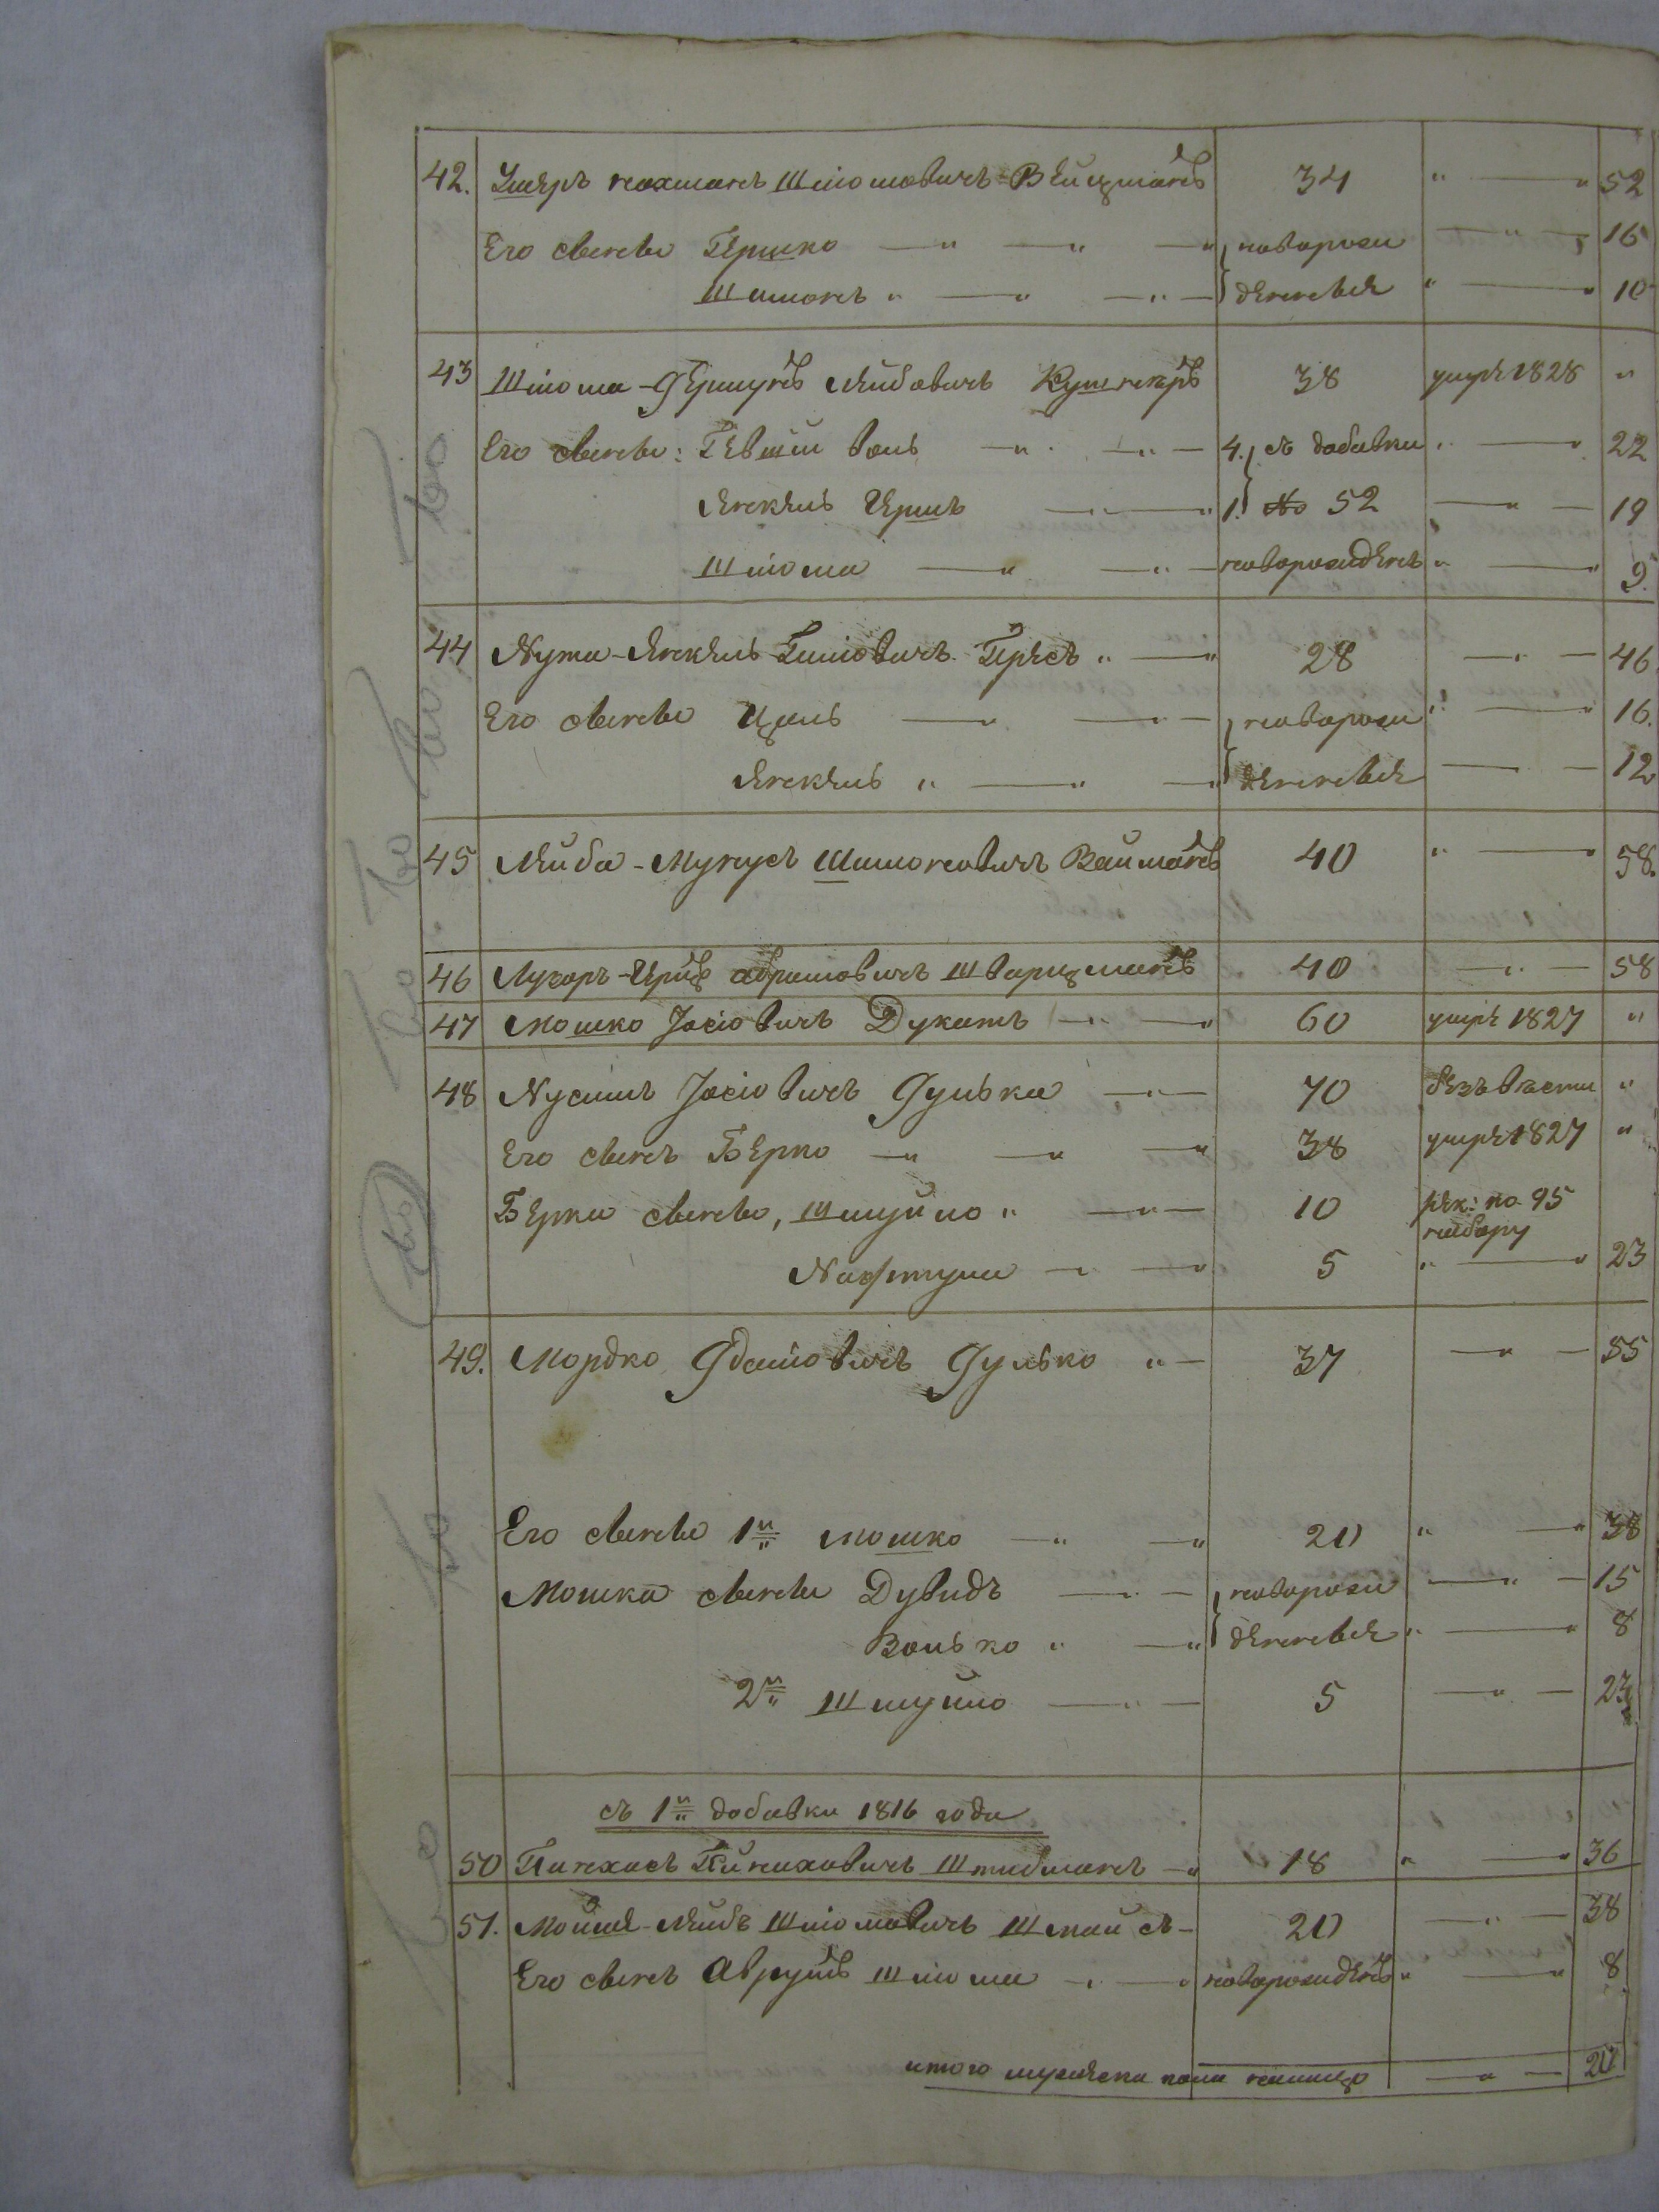 42. Умеръ нахманъ Шліомовичъ Вейцманъ 34 " — " 52
Его сыновья Гершко — " — " — " новорож — " — 16
Шимонъ " — " — " — денные " — " 10
43 Шлиома-Зелмунъ Лейбовичъ Кушниръ 38 умре 1828 "
Его сыновья: Гевший воль — " — " — 4. съ добавки " — " 22
Янкель Иершъ — " 1. No 52 — " — 19
Шлиома — " — " — новорожденъ " — " 9.
44 Нута-Янкель Гилиовичъ Гиресъ " — " 28 — " — 46
Его сыновья Цаль — " — " — новорож " — " 16.
Янкель " — " — " денные — " — 12
45 Лейба-Мунусъ Шимоновичъ Вайманъ 40 " — " 58.
46 Лузаръ-Ирицъ абрамовичъ Шварцманъ 40 — " — 58
47 Мошко Іосіовичъ Дукатъ — " — " 60 умре 1827 "
48 Нусимъ Іосіовичъ Гулька — " — 70 безъ вѣсти "
Его сынъ Берко — " — " — " 38 умре 1827 "
Берки сыновья, Шмуйло " — " — 10 рек: по 95 набору
Нафтула — " — " 5 " — " 23
49. Мордко Іделіовичъ Гулько " — 37 — " — 55
Его сыновья 1й Мошко — " — " 20 " — " 38
Мошка сыновья Дувидъ — " — новорож — " — 15
Волько " — " денные " — " 8
2й Шмуйло — " — 5 — " — 23
съ 1й добавки 1816 года
50 Пинхасъ Пинхаховичъ Штибманъ — " 18 " — " 36
51. Мойше-Лейбъ Шлиомовичъ Штайсъ — 20 — " — 38
Его сынъ Аврумъ Шлиома — " — " новорожденъ " — " 8
итого мужеска пола налицо — " — 20